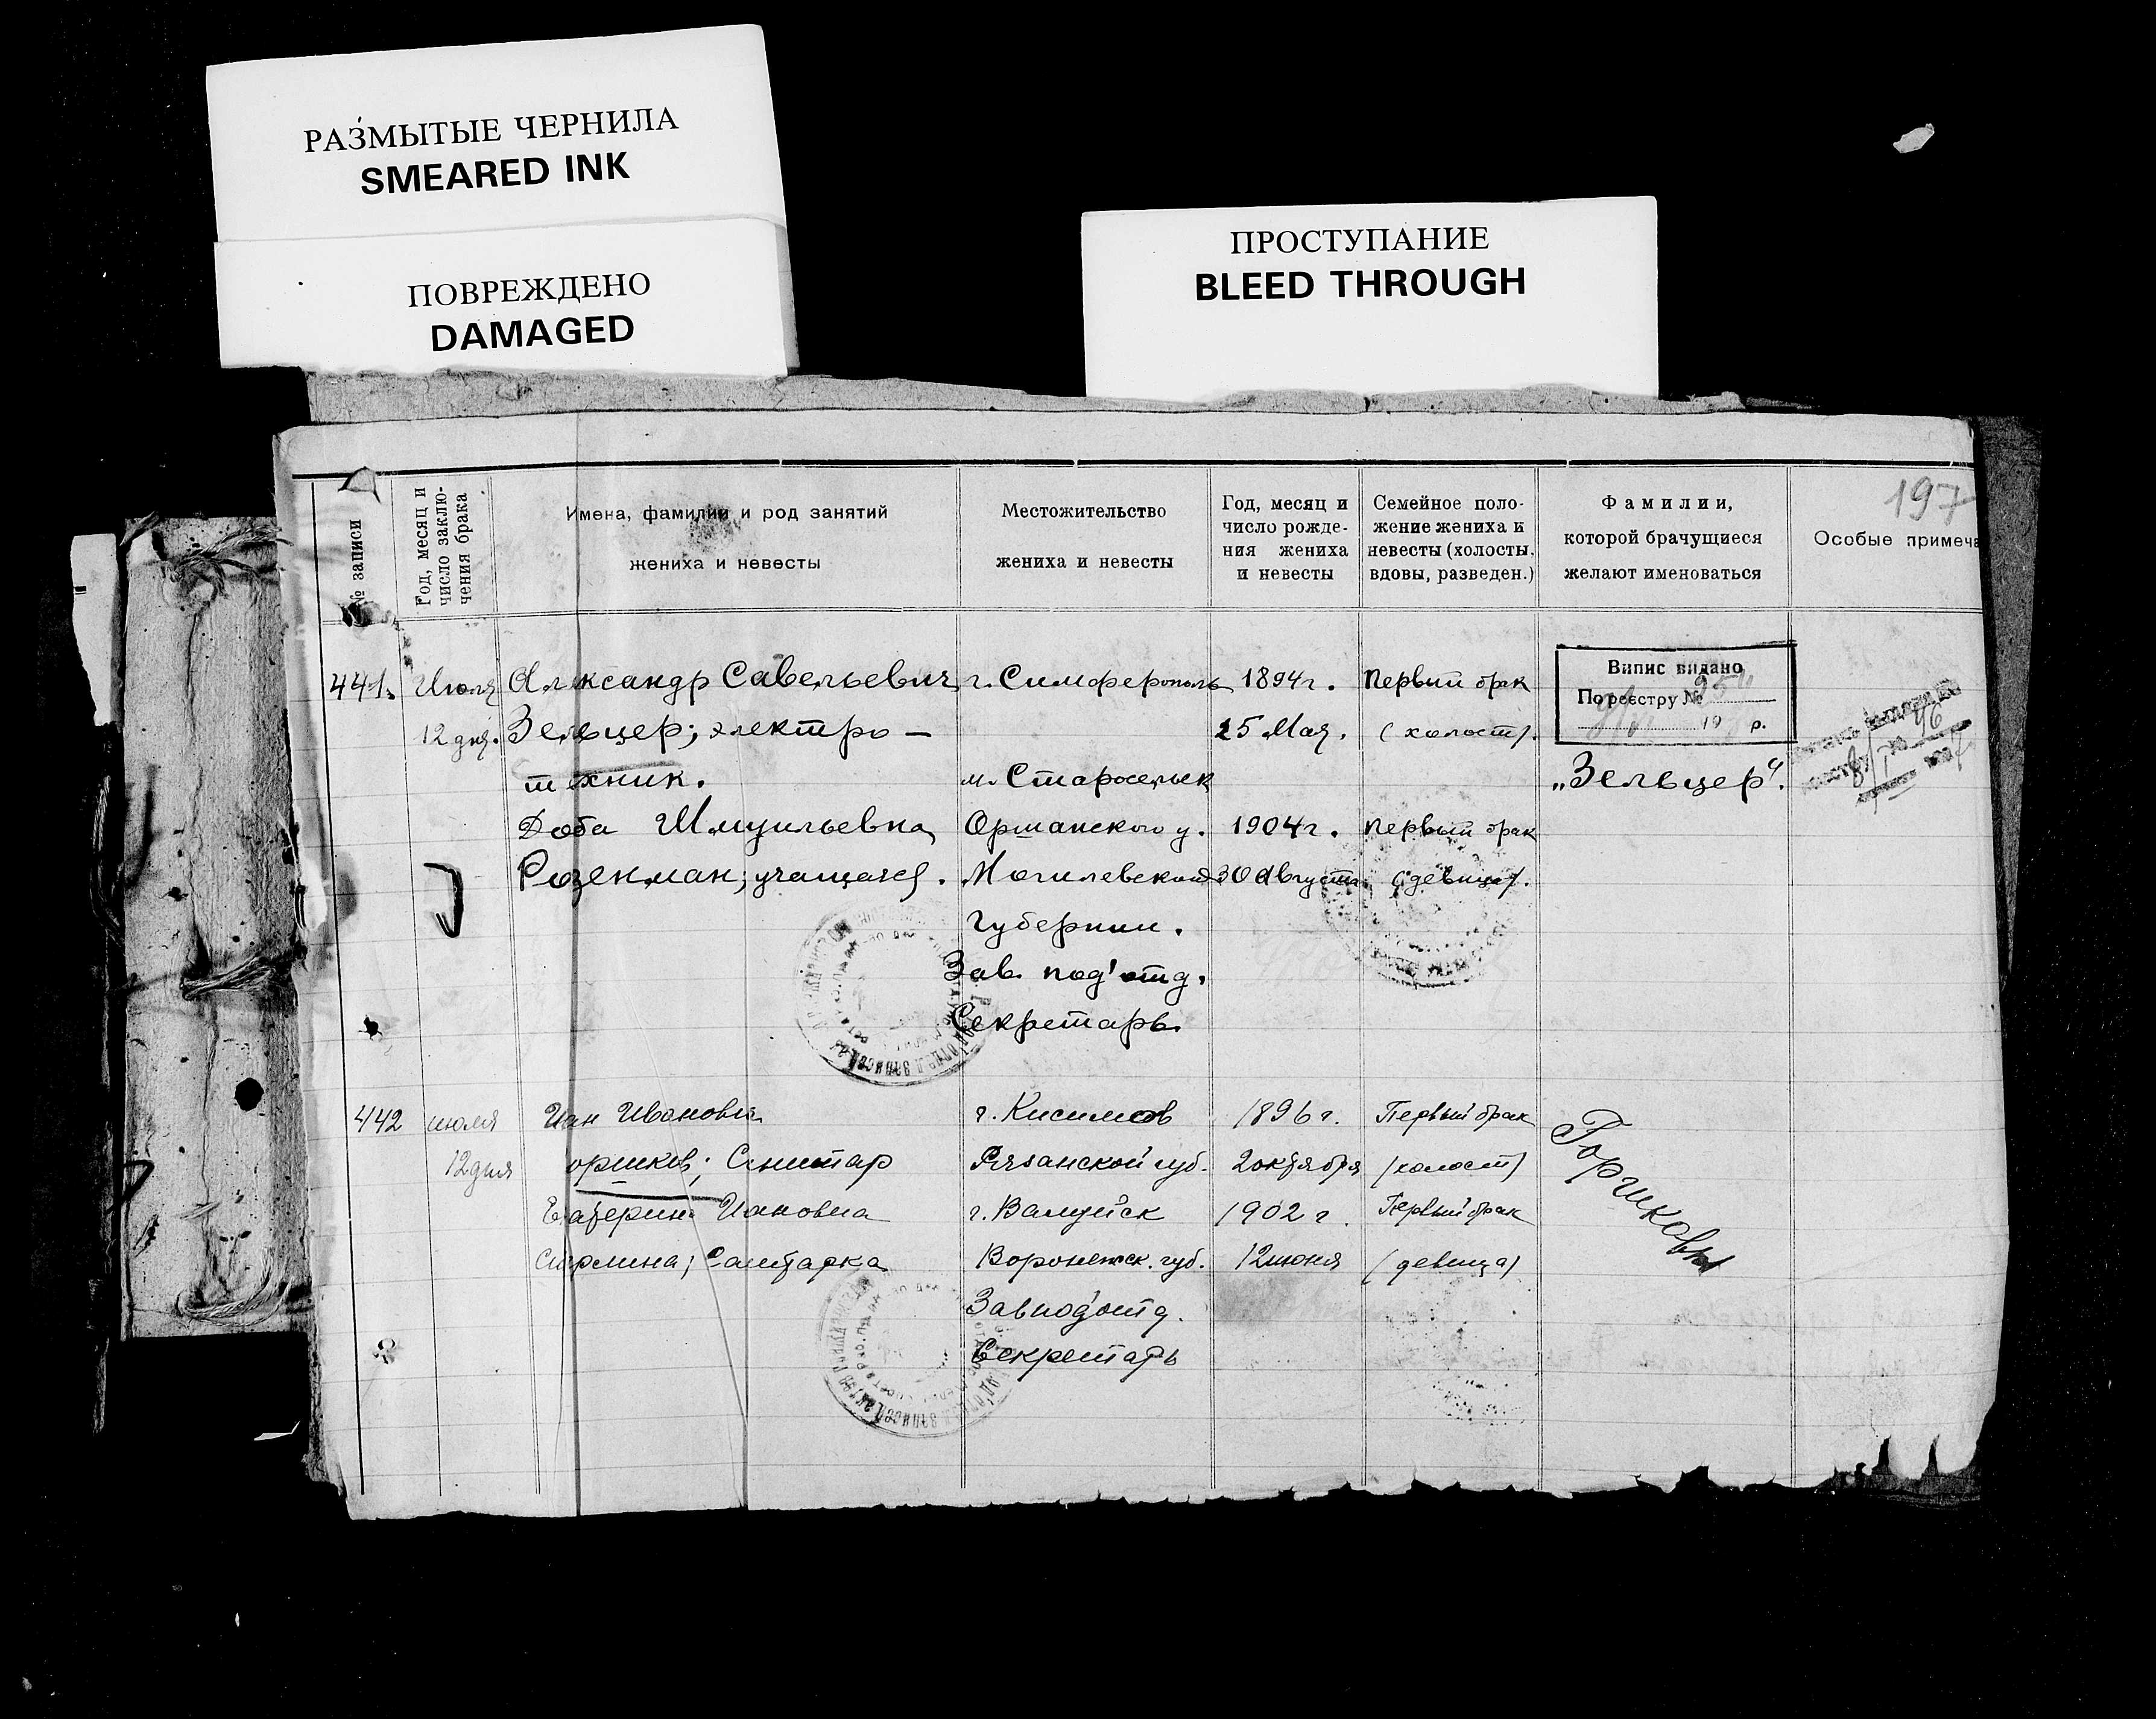 РАЗМЫТЫЕ ЧЕРНИЛА
SMEARED INK
ПОВРЕЖДЕНО
DAMAGED
ПРОСТУПАНИЕ
BLEED THROUGH
197
№ записи
Год, месяц и число заклю-
чения брака
Имена, фамилии и род занятий
жениха и невесты
Местожительство
жениха и невесты
Год, месяц и
число рожде-
ния жениха
и невесты
Семейное поло-
жение жениха и
невесты (холосты,
вдовы, разведен.)
Фамилии,
которой брачущиеся
желают именоваться
Особые примеча
441. Июля Александр Савельевич г. Симферополь 1894 г. Первый брак
12 дня. Зельцер; электро- 25 Мая. (холост).
техник. м. Старосельск
Доба Шмуильевна Оршанского у. 1904 г. Первый брак
Розенман; учащаяся. Могилевской 30 Августа (девица).
Губернии.
Зав. под'отд.
Секретарь
Випис видано
По реєстру №
19 р.
„Зельцер“.
442 июля Ивановић г. Касимов 1896 г. Первый брак
12 дня оршков; Санитар Рязанской губ. 2 октября (холост)
Екатерина Ивановна г. Валуйск 1902 г. Первый брак
Санитарка Воронежск. губ. 12 июня (девица)
Завпод'отд.
Секретарь
Горшковы